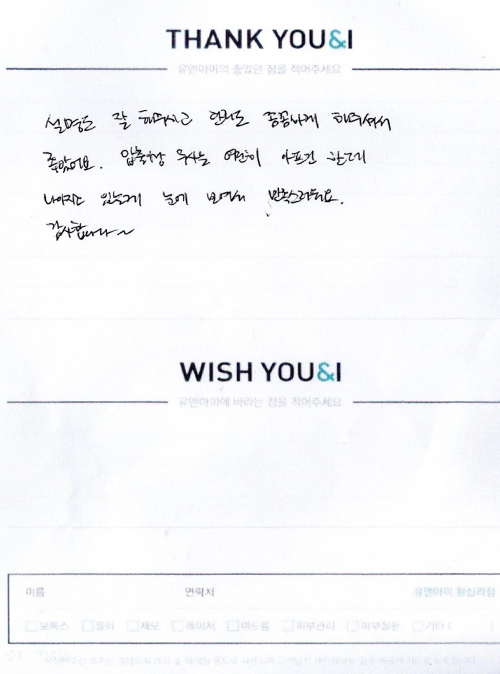 THANK YOU&I
유앤아이의 좋았던 점을 적어주세요
설명도 잘 해주시고 관리도 꼼꼼하게 해주셔서
좋았어요. 압출이랑 주사는 여전히 아프긴 한데
나아지고 있는게 눈에 보여서 만족스러워요.
감사합니다~
WISH YOU&I
유앤아이에 바라는 점을 적어주세요
이름 연락처 유앤아이 왕십리점
보톡스 필러 제모 레이저 여드름 피부관리 피부질환 기타 ( )